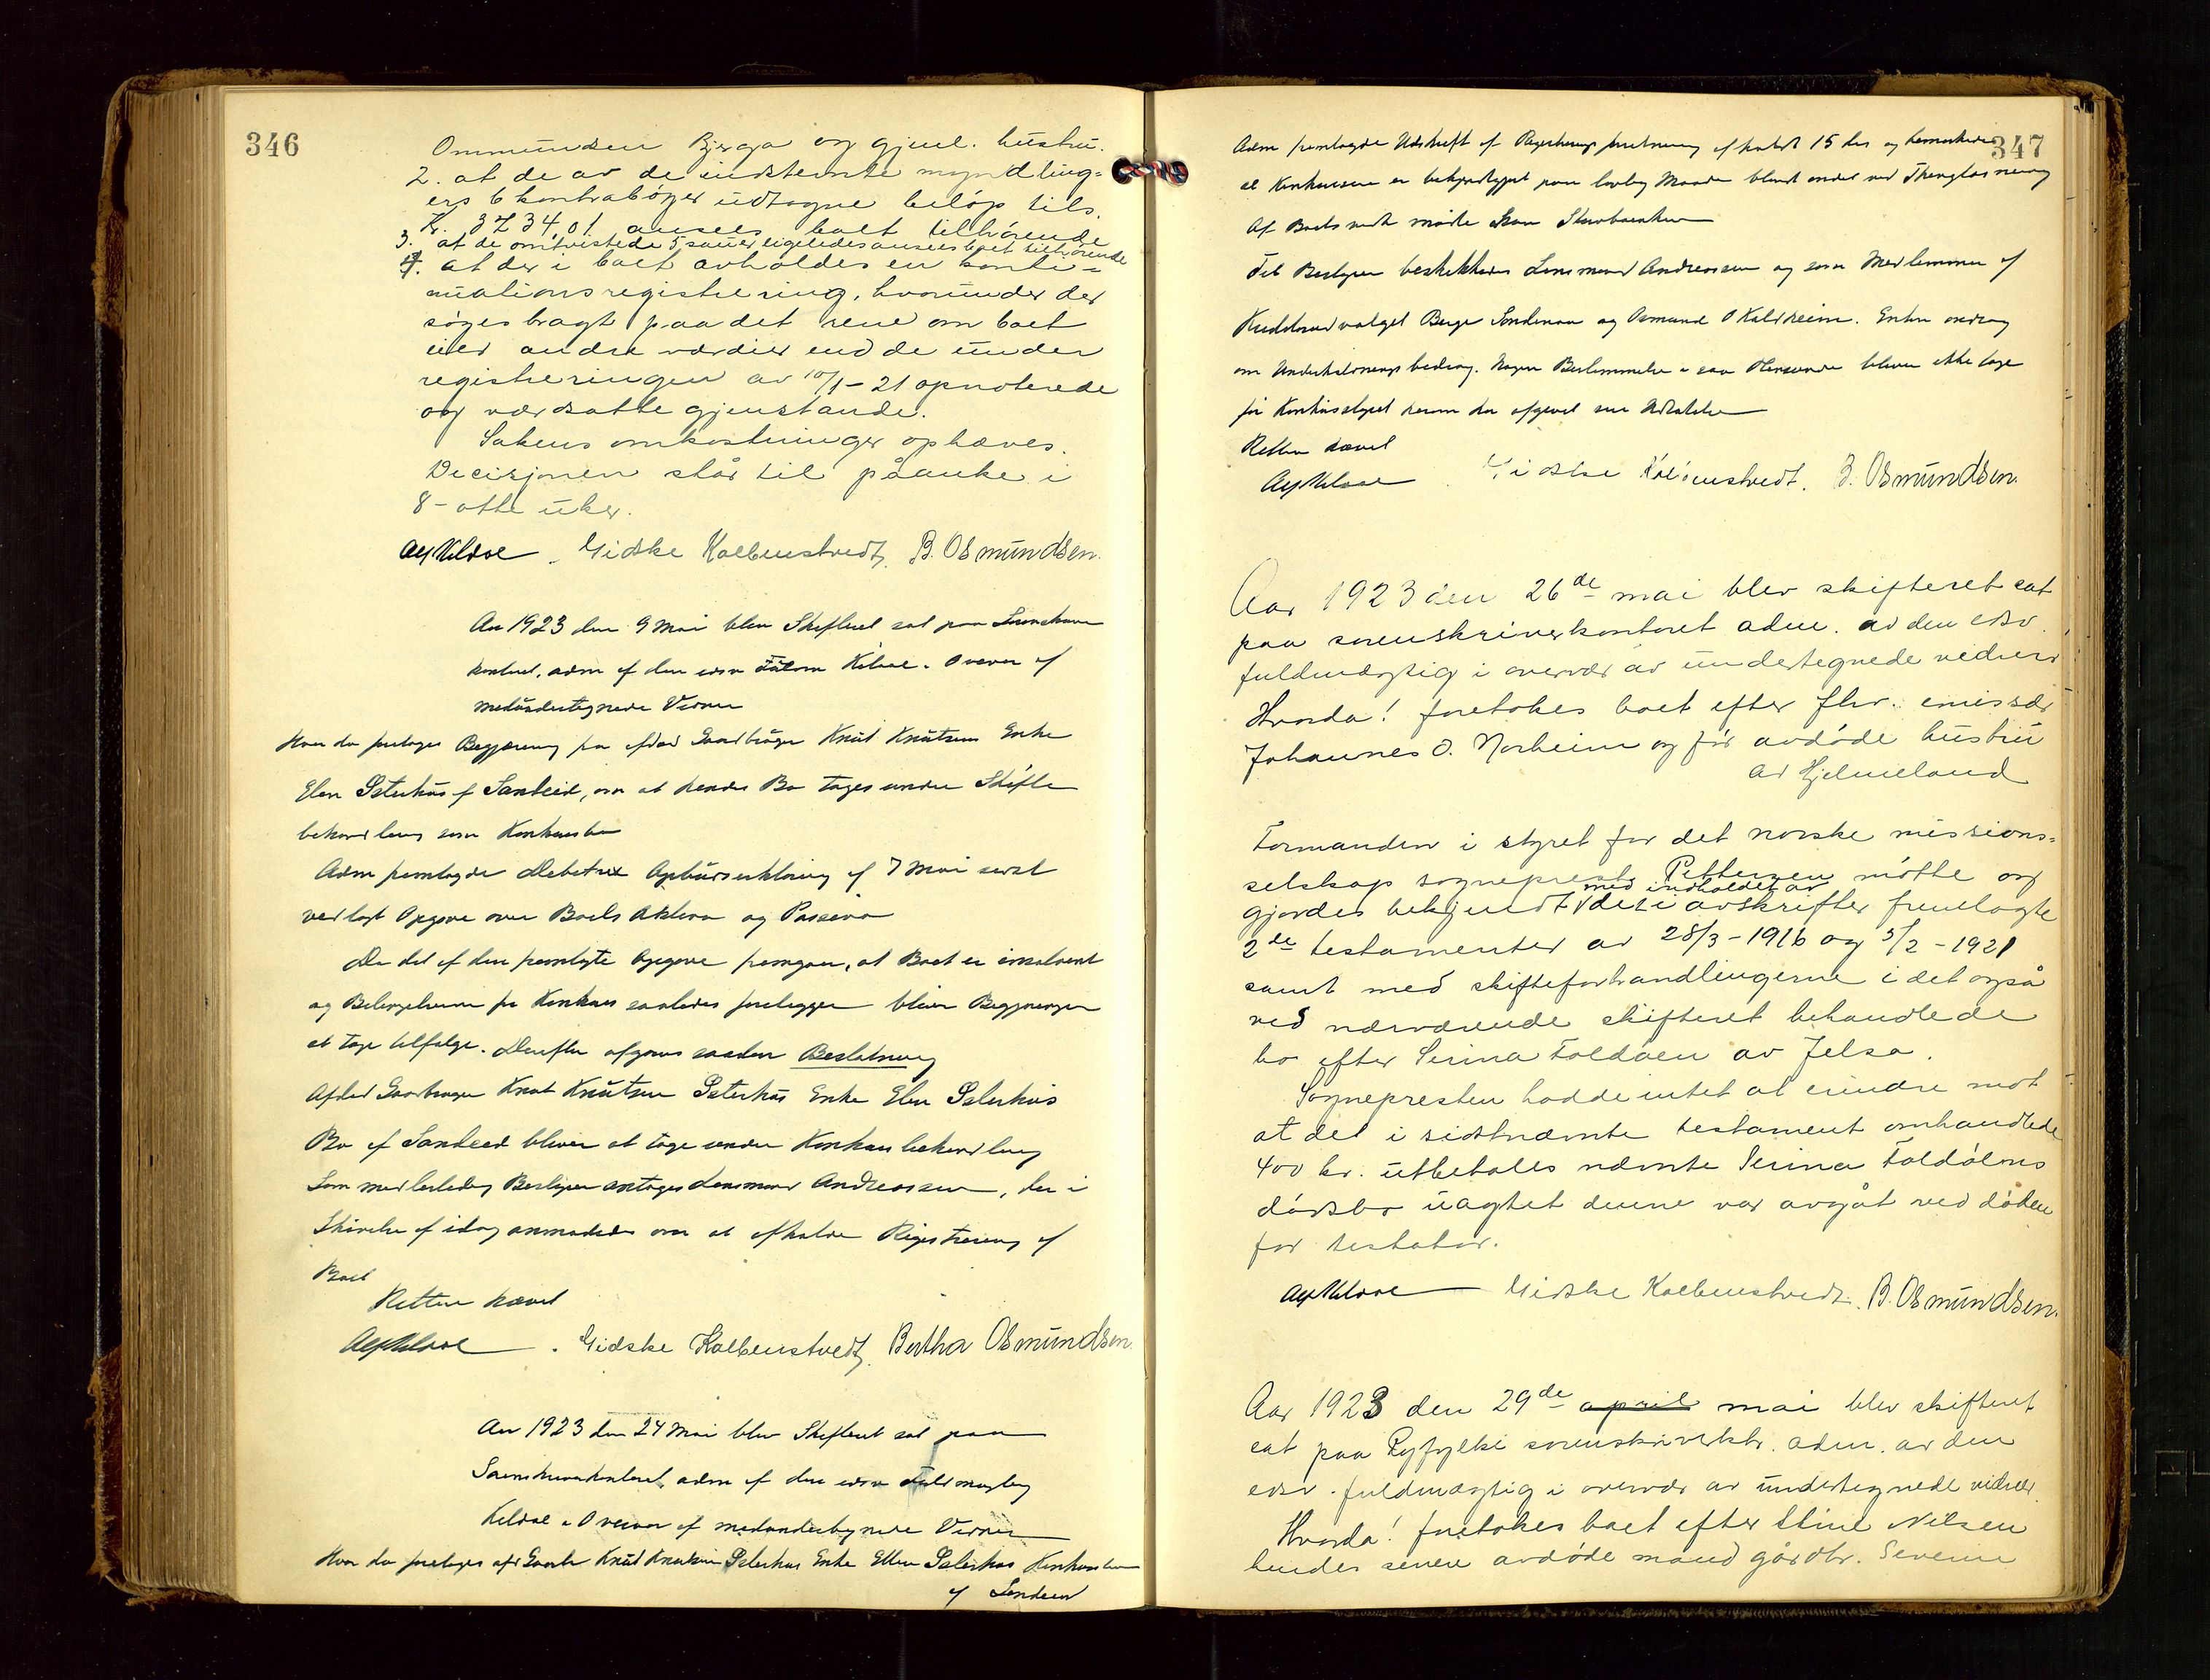 346
Ommundsen Bjerga og gjenl. hustru.
2. at de av de indstemte myndling-
ers 6 kontrabøger udtagne beløp tils.
Kr. 3734,01 ansees boet tilhørende
3. at de omtvistede 5 sauer ligeledes ansees boet tilhørende
4. at der i boet avholdes en konti-
nuationsregistrering, hvorunder der
søges bragt paa det rene om boet
eier andre værdier end de under
registreringen av 10/1-21 opnoterede
og værdsatte gjenstande.
Sakens omkostninger ophæves.
Decisjonen står til påanke i
8-otte uker.
Gidske Kolbenstvedt. B. Osmundsen.
Aar 1923 den 9 Mai blev Skifteret sat paa Sorenskriver
kontoret, adm af den edsv Fuldm Kilvæ i Overvær af
medundertegnede Vidner
Hvor da foretoges Begjæring fra afdød Gaardbruger Knut Knutsens Enke
Elen Sæterhus af Sandeid, om at hendes Bo tages under Skifte
behandling som Konkursbo
Adm fremlagde Debetrix Opbudserklæring af 7 Mai sidst
vedlagt Opgave over Boets Aktiva og Passiva
Da det af den fremlagte Opgave fremgaar, at Boet er insolvent
og Betingelserne for Konkurs saaledes foreligger bliver Begjæringen
at tage tilfølge. Derefter afgaves saadan Beslutning
Afdød Gaardbruger Knut Knutsen Sæterhus Enke Elen Sæterhus
Bo af Sandeid bliver at tage under Konkursbehandling
Som midlertidig Bestyrer antages Lensmand Andreassen, der i
Skrivelse af idag anmodedes om at afholde Registrering af
Boet
Retten hævet
Gidske Kolbenstvedt. Bertha Osmundsen.
Aar 1923 den 24 Mai blev Skifteret sat paa
Sorenskriverkontoret, adm af den edsv Fuldmægtig
Kilvæ i Overvær af medundertegnede Vidner
Hvor da foretoges afd Gaardbr Knut Knutsen Sæterhus Enke Ellen Sæterhus Konkursbo
af Sandeid
347
Adm fremlagde Udskrift af Registreringsforretning afholdt 15 ds og bemerkede
at Konkursen er bekjendtgjort paa lovlig Maade blandt andet ved Thinglæsning
Af Boets mødte
Til Bestyrer beskikkedes Lensmand Andreassen og som Medlemmer af
Kreditorudvalget Berge Sondenaa og Osmund O Kaldheim. Enken androg
om Underholdningsbidrag. Nogen Bestemmelse i saa Henseende bliver ikke tage
før Konkursstyret herom har afgivet sin Udtalelse
Retten hævet
Gidske Kolbenstvedt. B. Osmundsen.
Aar 1923 den 26de mai blev skifteret sat
paa sorenskriverkontoret adm. av den edsv.
fuldmægtig i overvær av undertegnede vidner
Hvorda! foretokes boet efter fhv. emissær
Johannes O. Norheim og før avdøde hustru
av Hjelmeland
Formanden i styret for det norske missions-
selskap sogneprest Pettersen møtte og
gjordes bekjendt med indholdet av de i avskrifter fremlagte
2de testamenter av 28/3-1916 og 5/2-1921
samt med skifteforhandlingerne i det også
ved nærværende skifteret behandlede
bo efter Serina Foldøen av Jelsa.
Sognepresten hadde intet at erindre mot
at det i sidstnævnte testament omhandlede
400 kr. utbetales nævnte Serina Foldøens
dødsbo uagtet denne var avgåt ved døden
før testator.
Gidske Kolbenstvedt. B. Osmundsen.
Aar 1923 den 29de april mai blev skifteret
sat paa Ryfylke sorenskriverktr. adm. av den
edsv. fuldmægtig i overvær av undertegnede vidner.
Hvorda! foretokes boet efter Stine Nilsen
hendes senere avdøde mand gårdbr. Severin